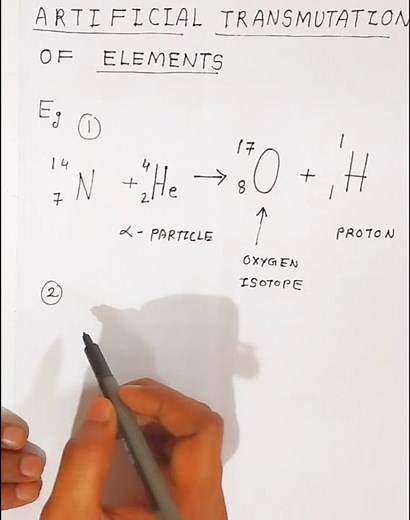 ARTIFICIAL TRANSMUTATION
OF ELEMENTS
Eg ①
¹⁴₇N + ⁴₂He → ¹⁷₈O + ¹₁H
α - PARTICLE PROTON
OXYGEN
ISOTOPE
②